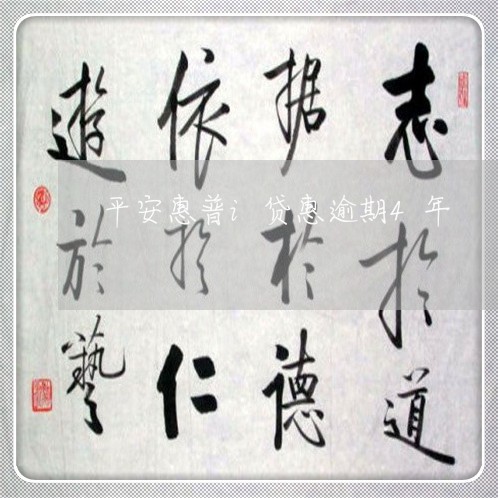 志於道
据於德
依於仁
遊於藝
平安惠普i贷惠逾期4年